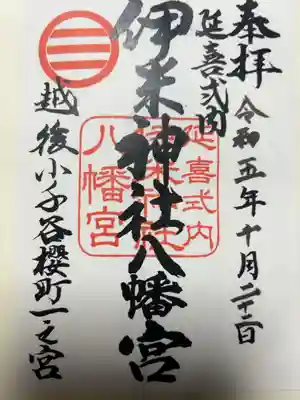 奉拝 令和五年十月二十二日
延喜式内
伊米神社八幡宮
延喜式内
伊米神社
八幡宮
越後小千谷櫻町一之宮